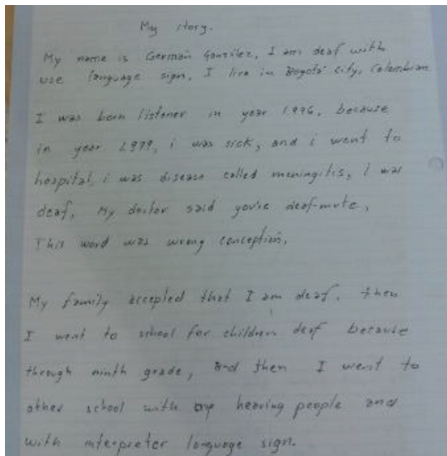 My story.
My name is Germán González, I am deaf with
use language sign, I live in Bogotá city, Colombian
I was born listener in year 1.976, because
in year 1.979, i was sick, and i went to
hospital, i was disease called meningitis, i was
deaf, My doctor said you're deaf-mute,
This word was wrong conception,
My family accepted that I am deaf, then
I went to school for children deaf because
through ninth grade, and then I went to
other school with hearing people and
with interpreter language sign.